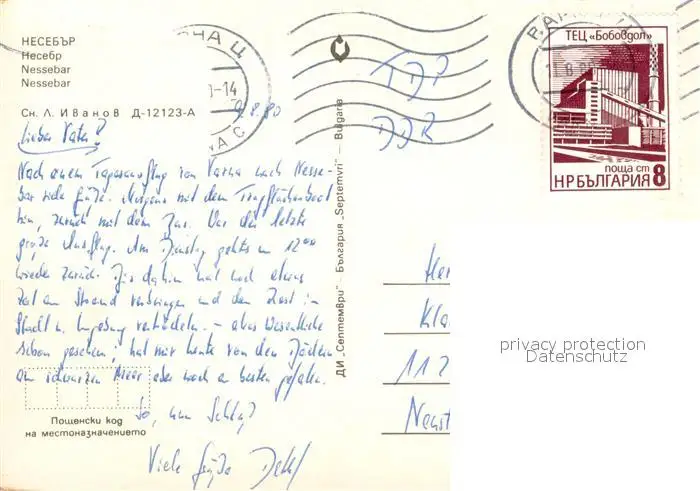 НЕСЕБЪР
Несебр
Nessebar
Nessebar
Сн. Л. Иванов Д-12123-А
9.8.80
Lieber Vater!
Nach einem Tagesausflug von Varna nach Nesse-
bar viele Grüße. Morgens mit dem Tragflächenboot
hin, zurück mit dem Bus. War der letzte
große Ausflug. Am Dienstag gehts um 12⁰⁰
wieder zurück. Bis dahin noch etwas
Zeit am Strand verbringen und den Rest in
Stadt u. Umgebung - alles Wesentliche
schon gesehen, hat mir heute von den Bädern
am schwarzen Meer aber noch am besten gefallen.
So, nun Schluß
Viele Grüße Detlef
Пощенски код
на местоназначението
ДИ „Септември" — България „Septemvri" — Bulgaria
DDR
ТЕЦ «Бобовдол»
поща ст
НР БЪЛГАРИЯ 8
Her
Kla
112
Neust
privacy protection
Datenschutz